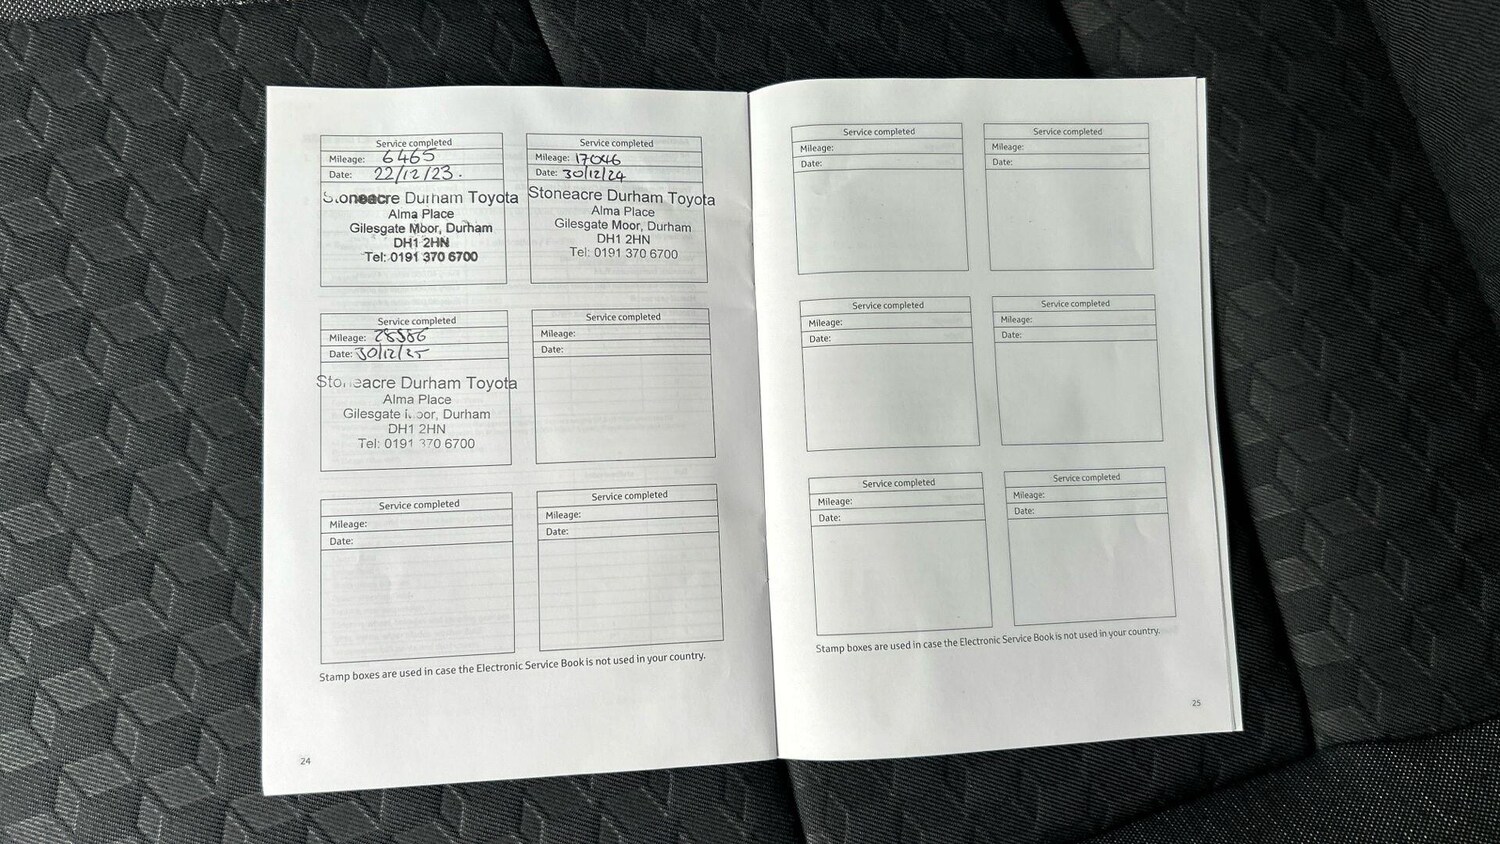 Service completed
Mileage: 6465
Date: 22/12/23.
Stoneacre Durham Toyota
Alma Place
Gilesgate Moor, Durham
DH1 2HN
Tel: 0191 370 6700
Service completed
Mileage: 17046
Date: 30/12/24
Stoneacre Durham Toyota
Alma Place
Gilesgate Moor, Durham
DH1 2HN
Tel: 0191 370 6700
Service completed
Mileage:
Date: 30/12/25
Stoneacre Durham Toyota
Alma Place
Gilesgate Moor, Durham
DH1 2HN
Tel: 0191 370 6700
Service completed
Mileage:
Date:
Service completed
Mileage:
Date:
Service completed
Mileage:
Date:
Stamp boxes are used in case the Electronic Service Book is not used in your country.
24
Service completed
Mileage:
Date:
Service completed
Mileage:
Date:
Service completed
Mileage:
Date:
Service completed
Mileage:
Date:
Service completed
Mileage:
Date:
Service completed
Mileage:
Date:
Stamp boxes are used in case the Electronic Service Book is not used in your country.
25